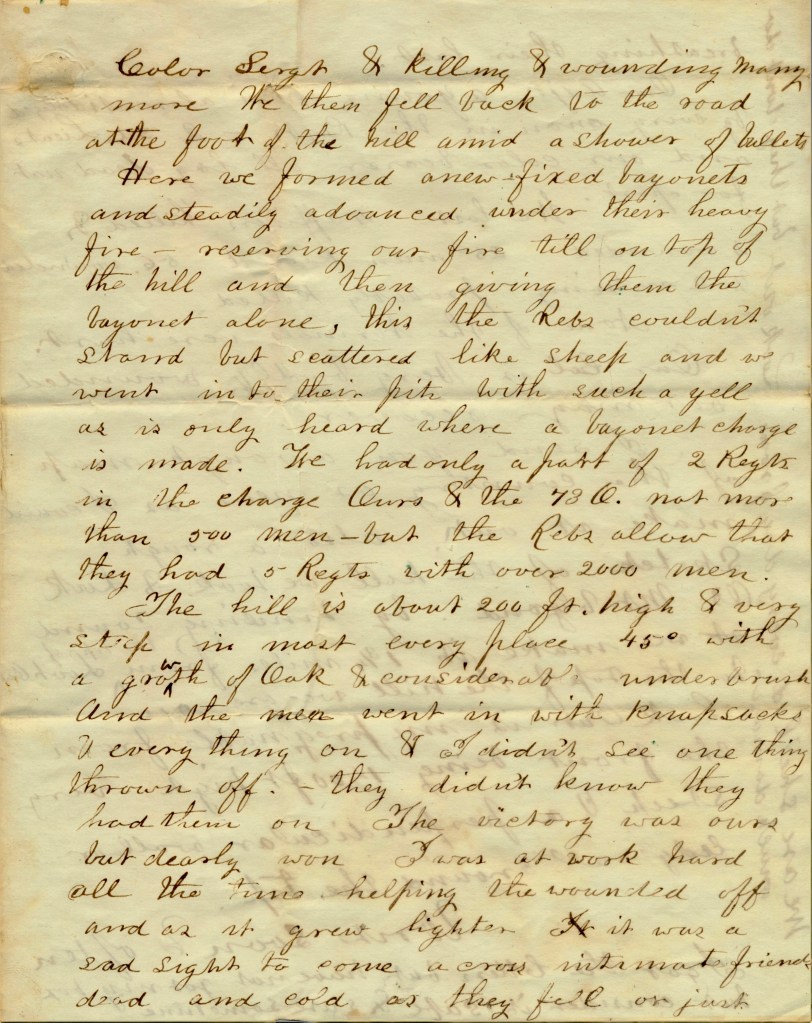 Color Sergt & killing & wounding many
more We then fell back to the road
at the foot of the hill amid a shower of bullets
Here we formed anew fixed bayonets
and steadily advanced under their heavy
fire – reserving our fire till on top of
the hill and then giving them the
bayonet alone, this the Rebs couldn't
stand but scattered like sheep and we
went in to their pits with such a yell
as is only heard where a bayonet charge
is made. We had only a part of 2 Regts
in the charge Ours & the 73 O. not more
than 500 men – but the Rebs allow that
they had 5 Regts with over 2000 men.
The hill is about 200 ft. high & very
steep in most every place 45° with
a growth of Oak & considerabl underbrush
And the men went in with knapsacks
& every thing on & I didn't see one thing
thrown off. – they didn't know they
had them on The victory was ours
but dearly won I was at work hard
all the time helping the wounded off
and as it grew lighter it was a
sad sight to come across intimate friends
dead and cold as they fell or just